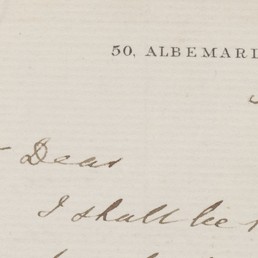 50, ALBEMARL
Dear
I shall be